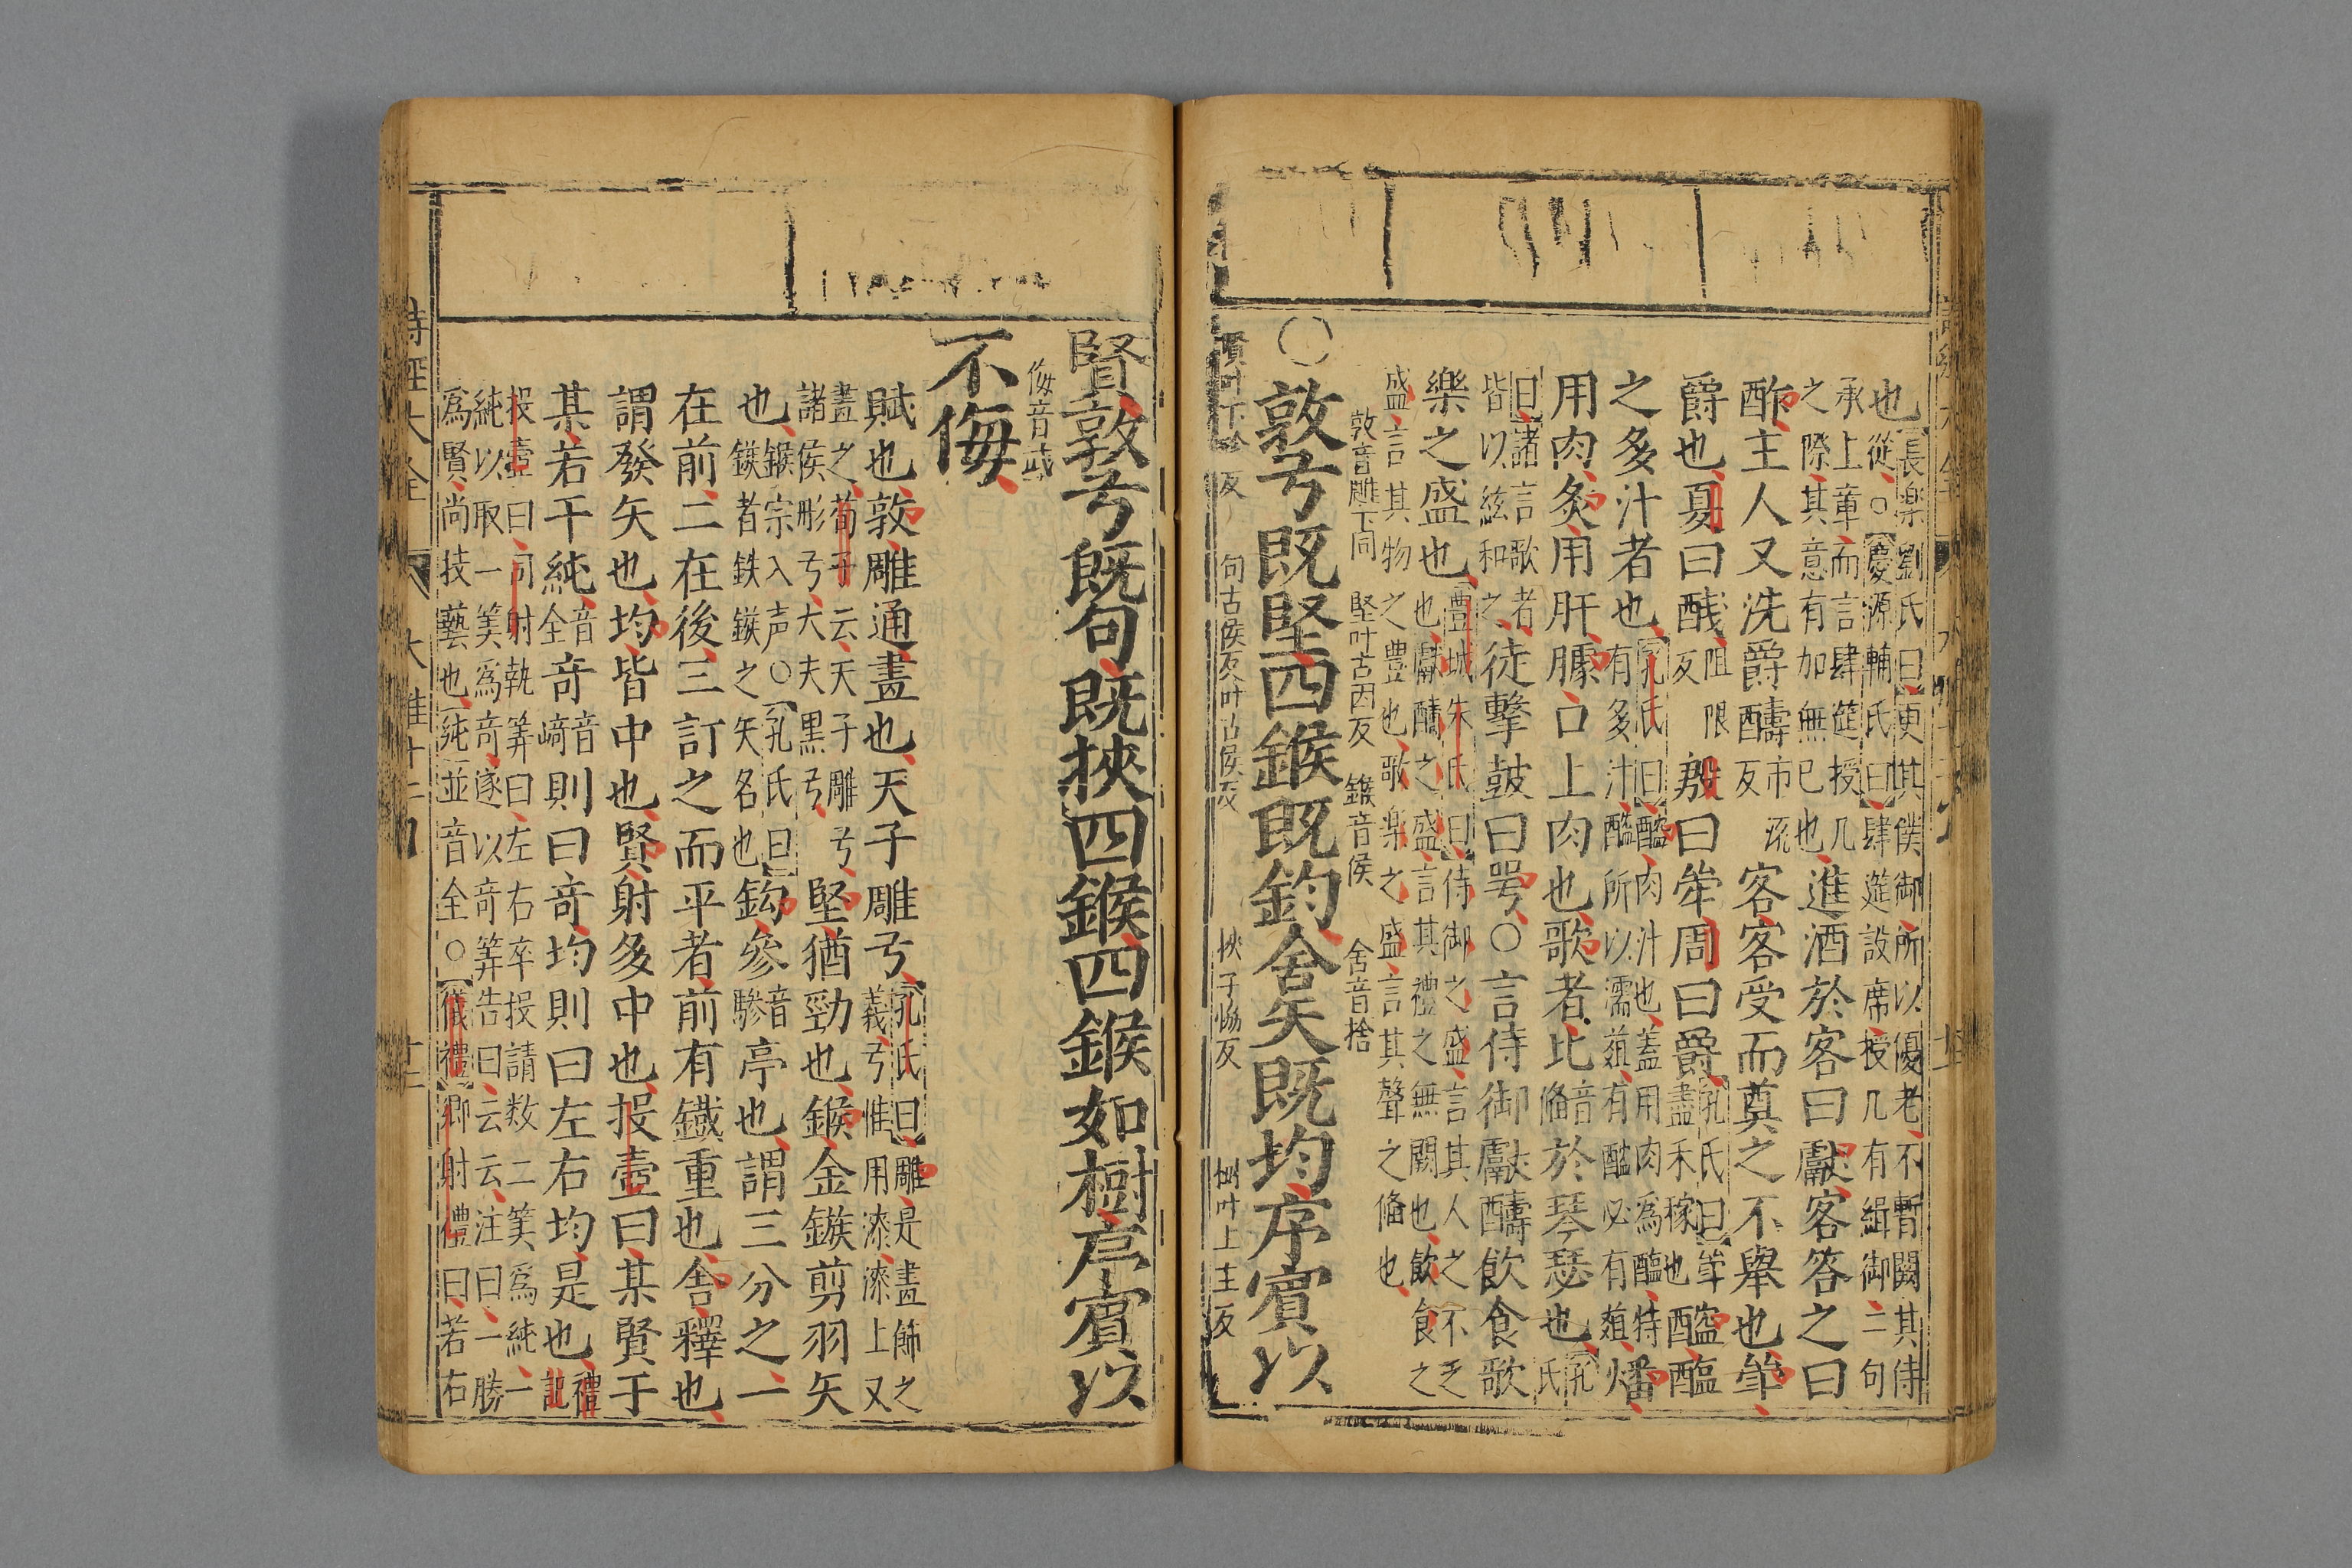 也【長樂劉氏曰】更其僕御所以優老不暫闕其侍從○【慶源輔氏曰】肆筵設席授几有緝御二句
承上章而言肆筵授几之際其意有加無已也進酒於客曰獻客答之曰
酢主人又洗爵醻市流反客客受而奠之不舉也斝
爵也夏曰醆阻限反殷曰斝周曰爵【孔氏曰】斝畫禾稼也醓醢
之多汁者也【孔氏曰】醓肉汁也蓋用肉為醢特有多汁醢所以濡菹有醢必有菹燔
用肉炙用肝臄口上肉也歌者比音俻於琴瑟也【孔氏
曰】諸言歌者皆以絃和之徒擊鼓曰咢○言侍御獻醻飲食歌
樂之盛也【豊城朱氏曰】侍御之盛言其人之不乏也獻醻之盛言其禮之無闕也飲食之
盛言其物之豊也歌樂之盛言其聲之俻也
敦音雕下同 堅叶古因反 鍭音侯 舍音捨
○敦弓既堅四鍭既鈞舍矢既均序賓以
反 句古侯反叶古侯反 挾子恊反 樹叶上主反
賢敦弓既句既挾四鍭四鍭如樹序賓以
侮音武
不侮
賦也敦雕通畫也天子雕弓【孔氏曰】雕是畫飾之義弓惟用漆漆上又
畫之荀子云天子雕弓諸侯彤弓大夫黑弓堅猶勁也鍭金鏃剪羽矢
也鍭宗入声○【孔氏曰】鏃者鉄鏃之矢名也鈎參音驂亭也謂三分之一
在前二在後三訂之而平者前有鐵重也舍釋也
謂發矢也均皆中也賢射多中也投壺曰某賢于
某若干純音全竒音﨑則曰竒均則曰左右均是也禮記
投壺曰司射執筭曰左右卒投請数二筭為純一
純以取一筭為竒遂以竒筭告曰云云注曰一勝
為賢尚技藝也純並音全○【儀禮】鄉射禮曰若右
詩經大全 大雅